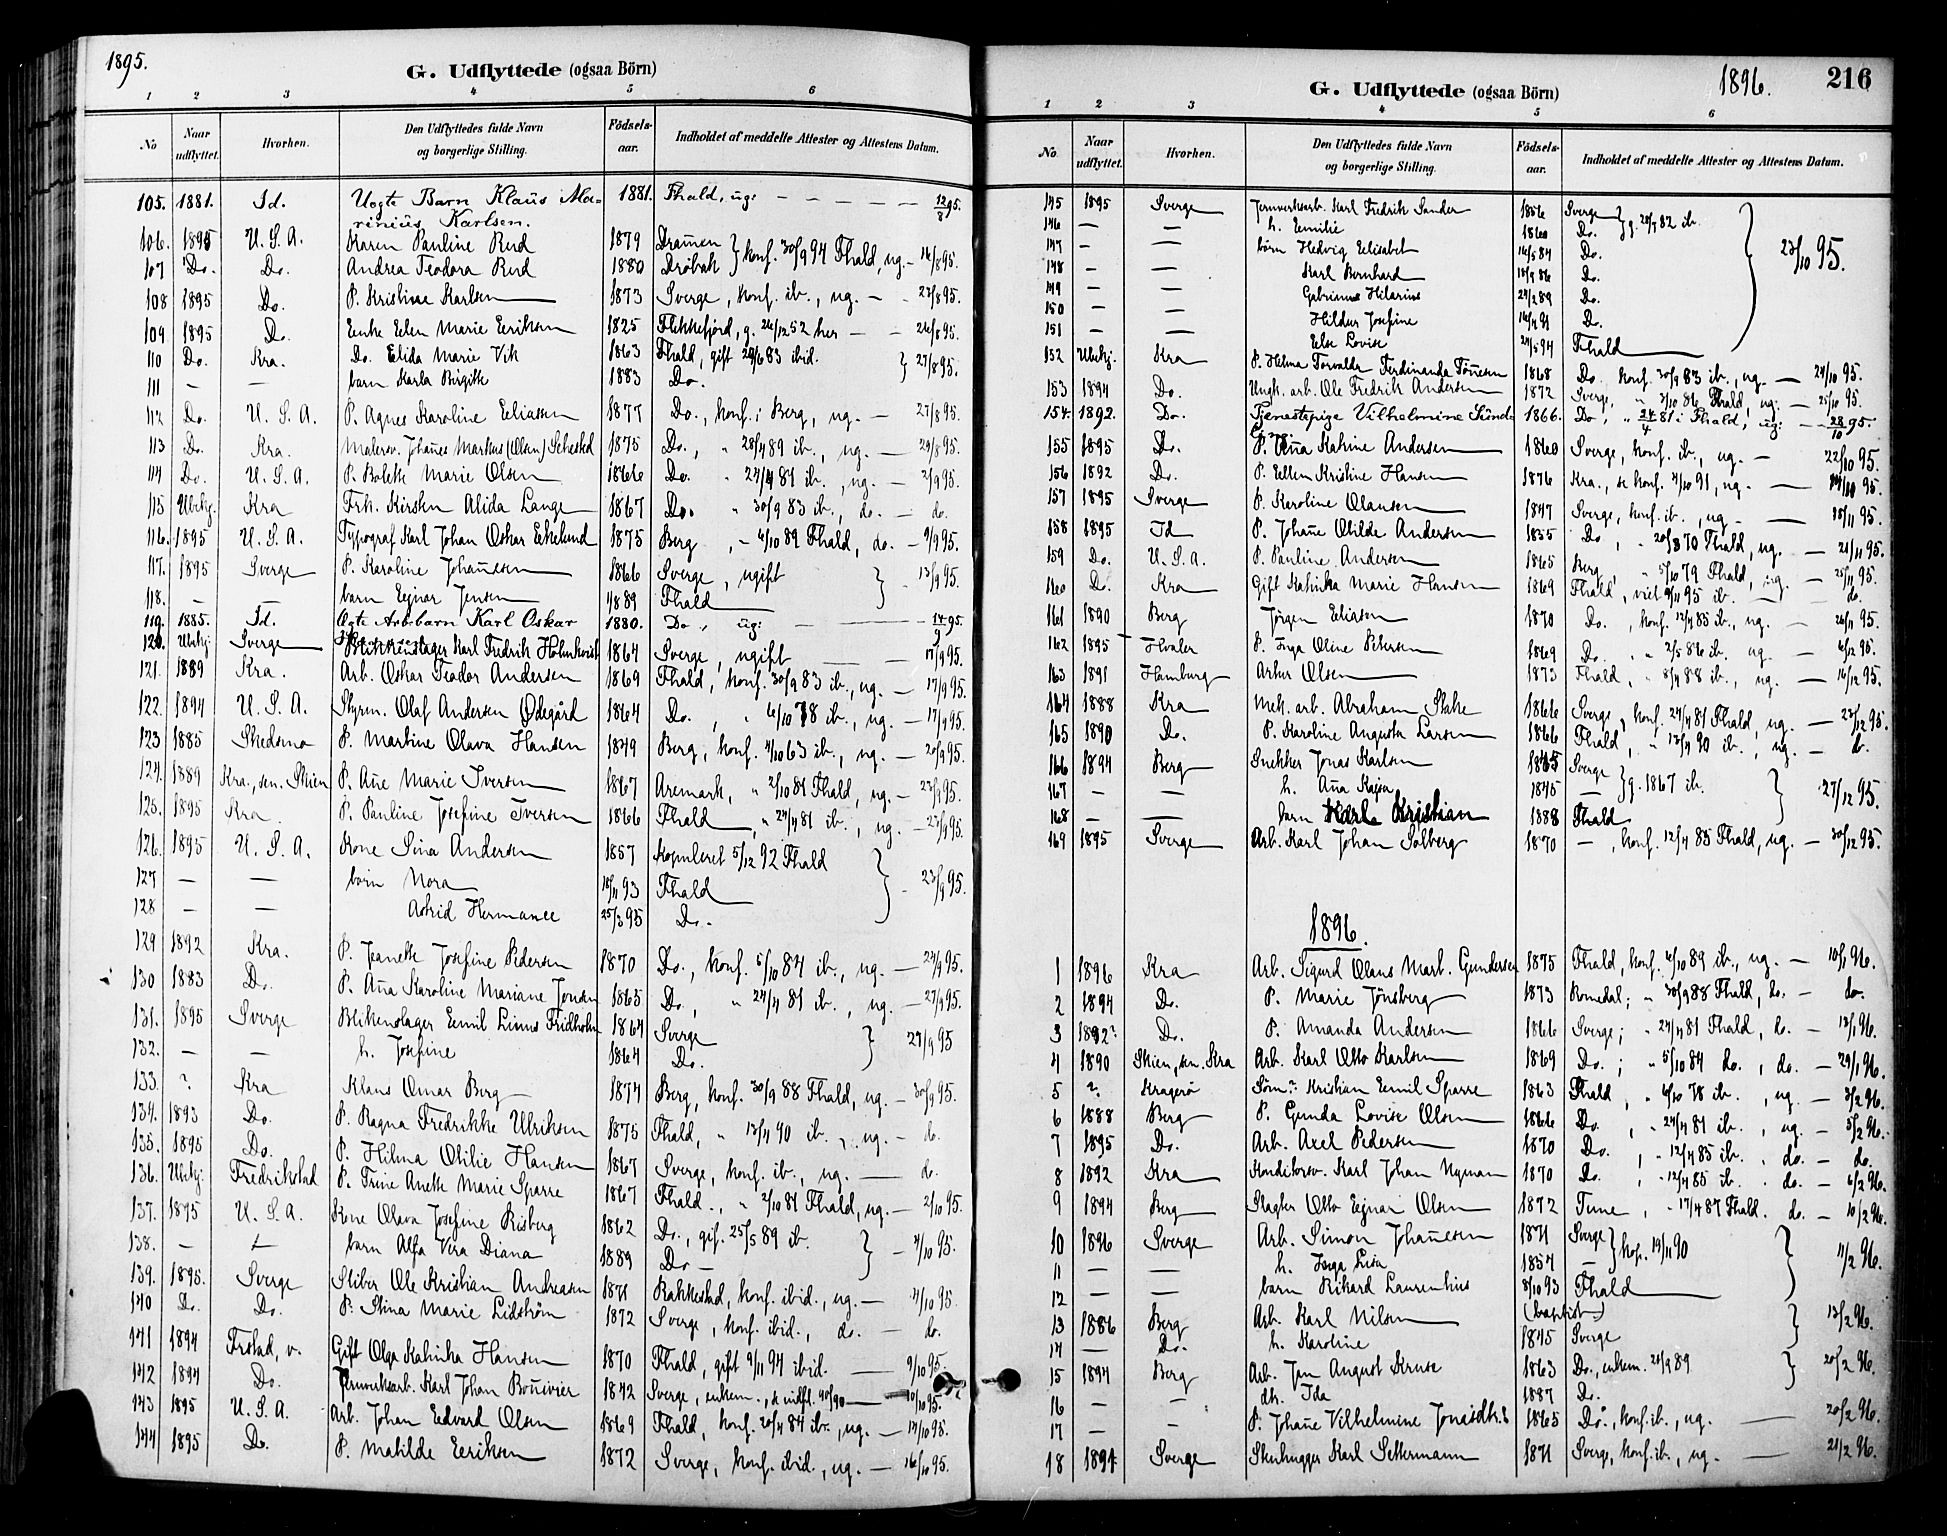 1895.
G. Udflyttede (ogsaa Börn)
1 2 3 4 5 6
No Naar udflyttet. Hvorhen. Den Udflyttedes fulde Navn og borgerlige Stilling. Födsels-aar. Indholdet af meddelte Attester og Attestens Datum.
105. 1881. Id. Uegte Barn Klaus Ma-rinius Karlsen. 1881. Fhald, ug: — — — — — 12/8 95.
106. 1895 U. S. A. Karen Pauline Rud 1879 Dramen } konf. 30/9 94 Fhald, ug. — 16/8 95.
107 Do. Do. Andrea Teodora Rud 1880 Drøbak
108 1895 Do. P. Kristine Karlsen 1873 Sverge, konf. ib., ug. — 23/8 95.
109 1895 Do. Enke Elen Marie Eriksen 1825 Flekkefjord, g. 26/12 52 her — 26/8 95.
110 Do. Kra. Do. Elida Marie Vik 1863 Fhald, gift 29/6 83 ibid. } 27/8 95.
111 — — barn Karla Birgitte 1883 Do.
112 Do. U. S. A. P. Agnes Karoline Eliassen 1877 Do., konf. i Berg, ug. — 27/8 95.
113 Do. Kra. Malersv. Johanes Markus (Olsen) Sehested 1875 Do., " 28/4 89 ib., ug. — 29/8 95.
114 Do. U. S. A. P. Bolette Marie Olsen 1866 Do. " 24/4 81 ib., ug. — 2/9 95.
115 Ubekj. Kra Frk. Kirsten Alida Lange 1867 Do. " 30/9 83 ib., do. — do.
116. 1895 U. S. A. Typograf Karl Johan Oskar Ekelund 1875 Berg, " 4/10 89 Fhald, do. — 9/9 95.
117. 1895 Sverge P. Karoline Johanesen 1866 Sverge, ugift } 13/9 95.
118. — — barn Ejnar Jensen 1889 Fhald
119. 1885. Id. Ægte Arb.barn Karl Oskar 1880. Do., ug: — — 14/9 95.
120. Ubekj. Sverge Blikkenslager Karl Fredrik Holmkvist 1864 Sverge, ugift — — 17/9 95.
121. 1889 Kra. Arb. Oskar Teodor Andersen 1869 Fhald, konf. 30/9 83 ib., ug. — 17/9 95.
122. 1894 U. S. A. Styrm. Olaf Andersen Ødegård 1864 Do., " 6/10 78 ib., ug. — 17/9 95.
123 1885 Skedsmo P. Martine Olava Hansen 1849 Berg, konf. 4/10 63 ib., ug. — 20/9 95.
124. 1889 Kra., sen. Skien P. Ane Marie Iversen 1867 Aremark, " 2/10 81 Fhald, ug. — 23/9 95.
125. 1895 Kra. P. Pauline Josefine Iversen 1866 Fhald, " 24/4 81 ib., ug. — 23/9 95.
126. 1895 U. S. A. Kone Sina Andersen 1857 Kopuleret 5/12 92 Fhald } 23/9 95.
127 — — børn Nora 18/11 93 Fhald
128 — — Astrid Hermance 25/3 95 Do.
129 1892 Kra. P. Jeanette Josefine Pedersen 1870 Do., konf. 5/10 84 ib., ug. — 24/9 95.
130 1883 Do. P. Ana Karoline Mariane Jensen 1865 Do., " 24/4 81 ib., ug. — 27/9 95.
131. 1895 Sverge Blikenslager Emil Linus Fridholm 1864 Sverge } 27/9 95
132. — — h. Josefine 1864 Do.
133. ? Kra Klaus Omar Berg 1874 Berg, konf. 30/9 88 Fhald, ug. — 30/9 95.
134. 1893 Do. P. Ragna Fredrikke Ulriksen 1875 Fhald, " 13/4 90 ib., ug. — do.
135. 1895 Do. P. Hilma Otilie Hansen 1867 Sverge, konf. ib., ug. — do.
136. Ubekj. Fredrikstad P. Trine Anette Marie Sparre 1867 Fhald., " 2/10 81 Fhald, ug. — 2/10 95.
137. 1895 U. S. A. Kone Olava Josefine Risberg 1862 Do., gif. 25/5 89 ib. } — 4/10 95.
138. — — barn Alfa Vera Diana 1889 Do —
139. 1895. Sverge Sliber Ole Kristian Andreasen 1871 Rakkestad, konf. ibid., ug. — 4/10 95.
140 Do. Do. P. Stina Marie Lidström 1872 Sverge, konf. ibid., do. — do.
141 1894 Frstad, v. Gift Olga Katinka Hansen 1870 Fhald, gift 9/11 94 ibid. — 9/10 95.
142 1894 Do. Jernverksarb. Karl Johan Bouvier 1842 Sverge, enkem., — 10/10 95.
143 1895 U. S. A. Arb. Johan Edvard Olsen 1869 Fhald, konf. 20/4 84 ib., ug. — 14/10 95.
144 1895 Do. P. Matilde Eriksen 1872 Sverge, konf. ibid., ug. — 16/10 95.
G. Udflyttede (ogsaa Börn) 1896. 216
1 2 3 4 5 6
No. Naar udflyttet. Hvorhen. Den Udflyttedes fulde Navn og borgerlige Stilling. Födsels-aar. Indholdet af meddelte Attester og Attestens Datum.
145 1895 Sverge Jernverksarb. Karl Fredrik Sander 1856 Sverge } g. 28/7 82 ib. } 23/10 95.
146 — — h. Emilie 1860 Do.
147 — — børn Hedvig Elisabet 16/5 84 Do.
148 — — Karl Bernhard 18/9 86 Do.
149 — — Gabrinus Hilarius 24/2 89 Do.
150 — — Hildur Josefine 14/4 91 Do.
151 — — Else Lovise 24/5 94 Fhald
152 Ubekj. Kra P. Helma Torvalda Ferdinanda Tönesen 1868 Do. konf. 30/9 83 ib., ug. — 24/10 95.
153 1894 Do. Ungk. arb. Ole Fredrik Andersen 1872 Sverge, " 3/10 86 Fhald, ug. — 25/10 95.
154. 1892. Do. Tjenestepige Vilhelmine 1866. Do, " 24/4 81 i Fhald, ug: — 28/10 95.
155 1895 Do. P. Ana Katrine Andersen 1860 Sverge, konf. ib., ug. — 22/10 95.
156 1892 Do. P. Ellen Kristine Hansen 1876 Kra., se konf. 4/10 91, ug. — 95.
157 1895 Sverge P. Karoline Olausen 1847 Sverge, konf. ib., ug. — 18/11 95.
158 1895 Id P. Johane Otilde Andersen 1855 Do, " 20/3 70 Fhald, ug. — 21/11 95.
159 Do. U. S. A. P. Pauline Andersen 1865 Berg " 5/10 79 Fhald, ug. — 25/11 95.
160 Do. Kra Gift Katinka Marie Hansen 1869 Fhald, viet 9/11 95 ib. — do.
161 1890 Berg Jörgen Eliasen 1870 Do., konf. 12/4 85 ib., ug. — 26/11 95.
162 1895 Hvaler P. Inga Oline Petersen 1869 Do. " 2/5 86 ib. ug. — 6/12 95.
163 1891 Hamburg Artur Olsen 1873 Fhald, " 8/4 88 ib., ug. — 16/12 95.
164 1888 Kra Mek. arb. Abraham Stake 1866 Sverge, konf. 24/4 81 Fhald, ug. — 23/12 95.
165 1890 Do. P. Karoline Augusta Larsen 1866 Fhald, " 13/4 90 ib., ug. — do.
166 1894 Berg Snekker Jonas Karlsen 1845 Sverge } g. 1867 ib. } 27/12 95.
167 — — h. Ana Kajsa 1845 —
168 — — barn Karl Kristian 1888 Fhald
169 1895 Sverge Arb. Karl Johan Solberg 1870 —, konf. 12/4 85 Fhald, ug. — 30/12 95.
1896.
1 1896 Kra Arb. Sigurd Olaus Mart. Gundersen 1875 Fhald, konf. 4/10 89 ib., ug. — 10/1 96.
2 1894 Do. P. Marie Tönsberg 1873 Romedal; " 30/9 88 Fhald, do. — do.
3 1892? Do. P. Amanda Andersen 1866 Sverge; " 24/4 81 Fhald, do. — 13/1 96.
4 1890 Skien, sen. Kra Arb. Karl Otto Karlsen 1869 Do.; " 5/10 84 do., do. — 29/1 96.
5 ? Kragerø Söm.? Kristian Emil Sparre 1863 Fhald, " 6/10 78 ib., ug. — 3/2 96.
6 1888 Berg P. Gunda Lovise Olsen 1866 Do. " 24/4 81 ib., ug. — 5/2 96.
7 1895 Do. Arb. Axel Pedersen 1870 Do. " 12/4 85 ib. do. — do.
8 1892 Kra Konditorsv. Karl Johan Nyman 1870 Do. " 12/4 85 ib. do. — 6/2 96.
9 1894 Berg Slagter Otto Ejnar Olsen 1872 Tune, " 17/4 87 Fhald. do. — 10/2 96.
10 1896 Sverge Arb. Simon Johanesen 1871 Sverge } kop. 14/11 90 } 11/2 96.
11 — — h. Inga Lisa 1857 —
12 — — barn Rikard Laurentius 8/10 93 Fhald
13 1886 Berg Arb. Karl Nilsen (baptist) } 13/2 96.
14 — Do. h. Karoline 1845 Sverge
15 1894 Berg Arb. Jan August Kruse 1863 Do., enkem. 21/9 89 } 20/2 96.
16 — — dt. Ida 1887 Do.
17 — — P. Johane Vilhelmine Jonasdtr. 1865 Do., konf. ib., ug. — 20/2 96.
18 1894 Sverge Stenhugger Karl Settermann 1871 Sverge, konf. ib., ug. — 21/2 96.